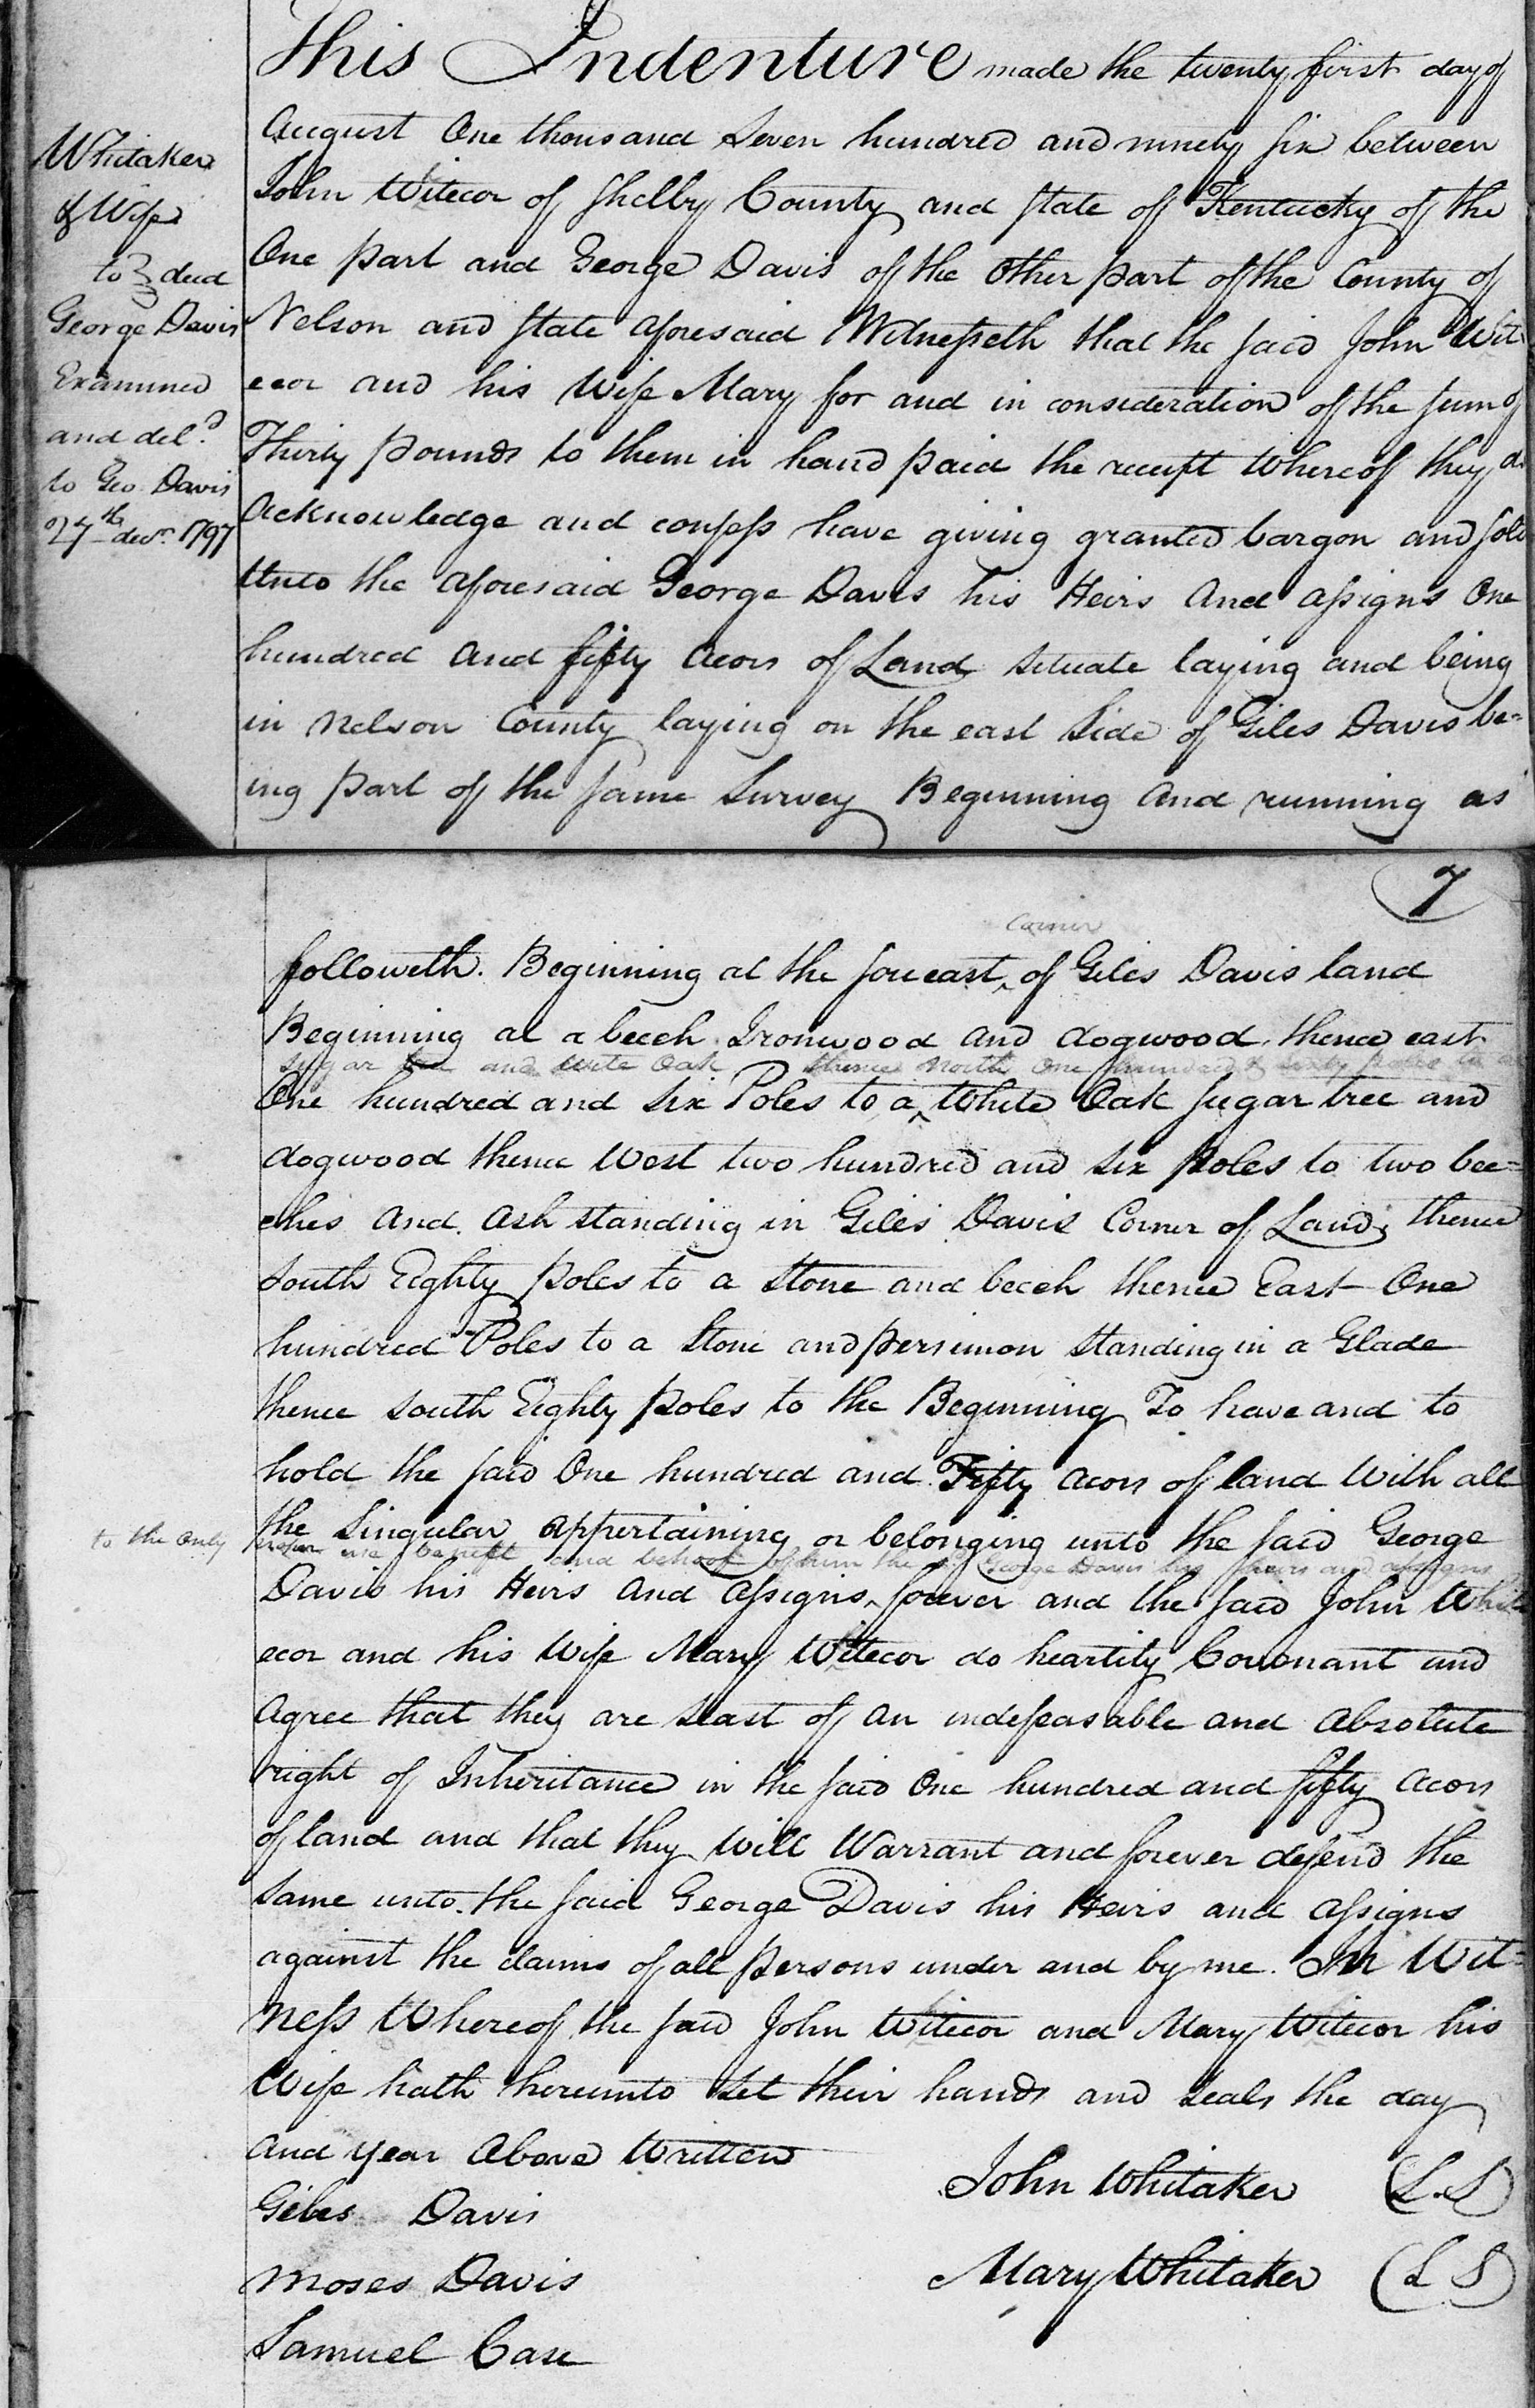 This Indenture made the twenty first day of
August One thousand Seven hundred and ninety six between
John Witecor of Shelby County and State of Kentucky of the
One part and George Davis of the other part of the County of
Nelson and State aforesaid Witnesseth that the said John Wit
ecor and his Wife Mary for and in consideration of the sum of
Thirty pounds to them in hand paid the receipt whereof they do
acknowledge and confess have giving granted bargon and sold
Unto the aforesaid George Davis his Heirs And assigns One
hundred and fifty acors of Land situate laying and being
in Nelson County laying on the east side of Giles Davis be=
ing part of the same Survey Beginning and running as
Whitaker
& Wife
to } deed
George Davis
Examined
and deld.
to Geo. Davis
27th decr. 1797
7
corner
followeth. Beginning at the foureast ^ of Giles Davis land
Beginning at a beech Ironwood and dogwood thence east
sugar tree and wite Oak thence North one hundred & sixty poles to a
One hundred and six Poles to a ^ White Oak sugar tree and
dogwood thence West two hundred and six poles to two bee=
ches and Ash standing in Giles Davis Corner of Land, thence
South Eighty poles to a Stone and beech thence East One
hundred Poles to a Stone and persimon standing in a Glade
thence south Eighty poles to the Beginning To have and to
hold the said One hundred and Fifty acors of land With all
the Singular appertaining or belonging unto the said George
to the only proper use benefit and behoof of him the sd. George Davis his heirs and assigns
Davis his Heirs and assigns ^ forever and the said John Whit
ecor and his Wife Mary Witecor do heartily Covonant and
agree that they are seast of an indefeasable and absolute
right of Inheritance in the said One hundred and fifty acors
of land and that they will Warrant and forever defend the
same unto the said George Davis his Heirs and assigns
against the claims of all persons under and by me. In Wit=
ness Whereof the said John Witecor and Mary Witecor his
Wife hath hereunto set their hands and seals the day
and year above written
Giles Davis
Moses Davis
Samuel Case
John Whitaker (L.S)
Mary Whitaker (L S)